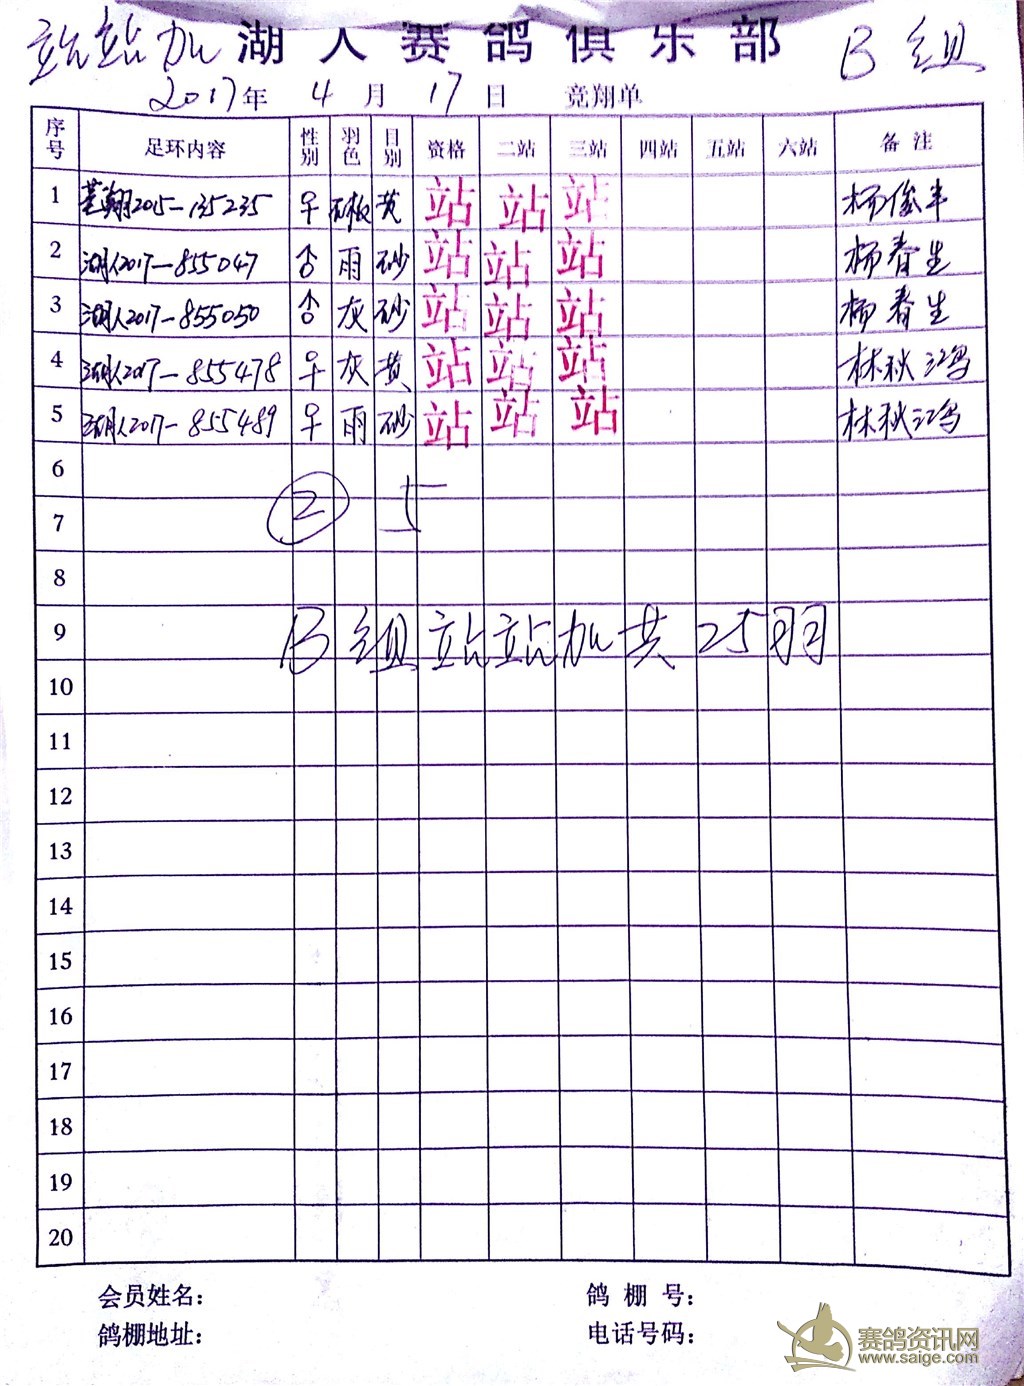 站站加 湖人赛鸽俱乐部 B组
2017年 4月 17日 竞翔单
序号 足环内容 性别 羽色 目别 资格 二站 三站 四站 五站 六站 备注
1 翔2015-135235 黄 站 站 站 杨俊丰
2 湖人2017-855047 雨 砂 站 站 站 杨春生
3 湖人2017-855050 灰 砂 站 站 站 杨春生
4 湖人2017-855478 灰 黄 站 站 站 林秋鸿
5 湖人2017-855489 雨 砂 站 站 站 林秋鸿
6
② 5
7
8
9 B组站站加共25羽
10
11
12
13
14
15
16
17
18
19
20
会员姓名: 鸽棚号:
鸽棚地址: 电话号码:
赛鸽资讯网
www.saige.com